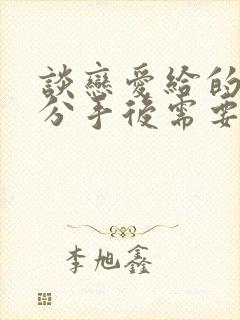 談戀愛給的
分手後需要
李旭鑫